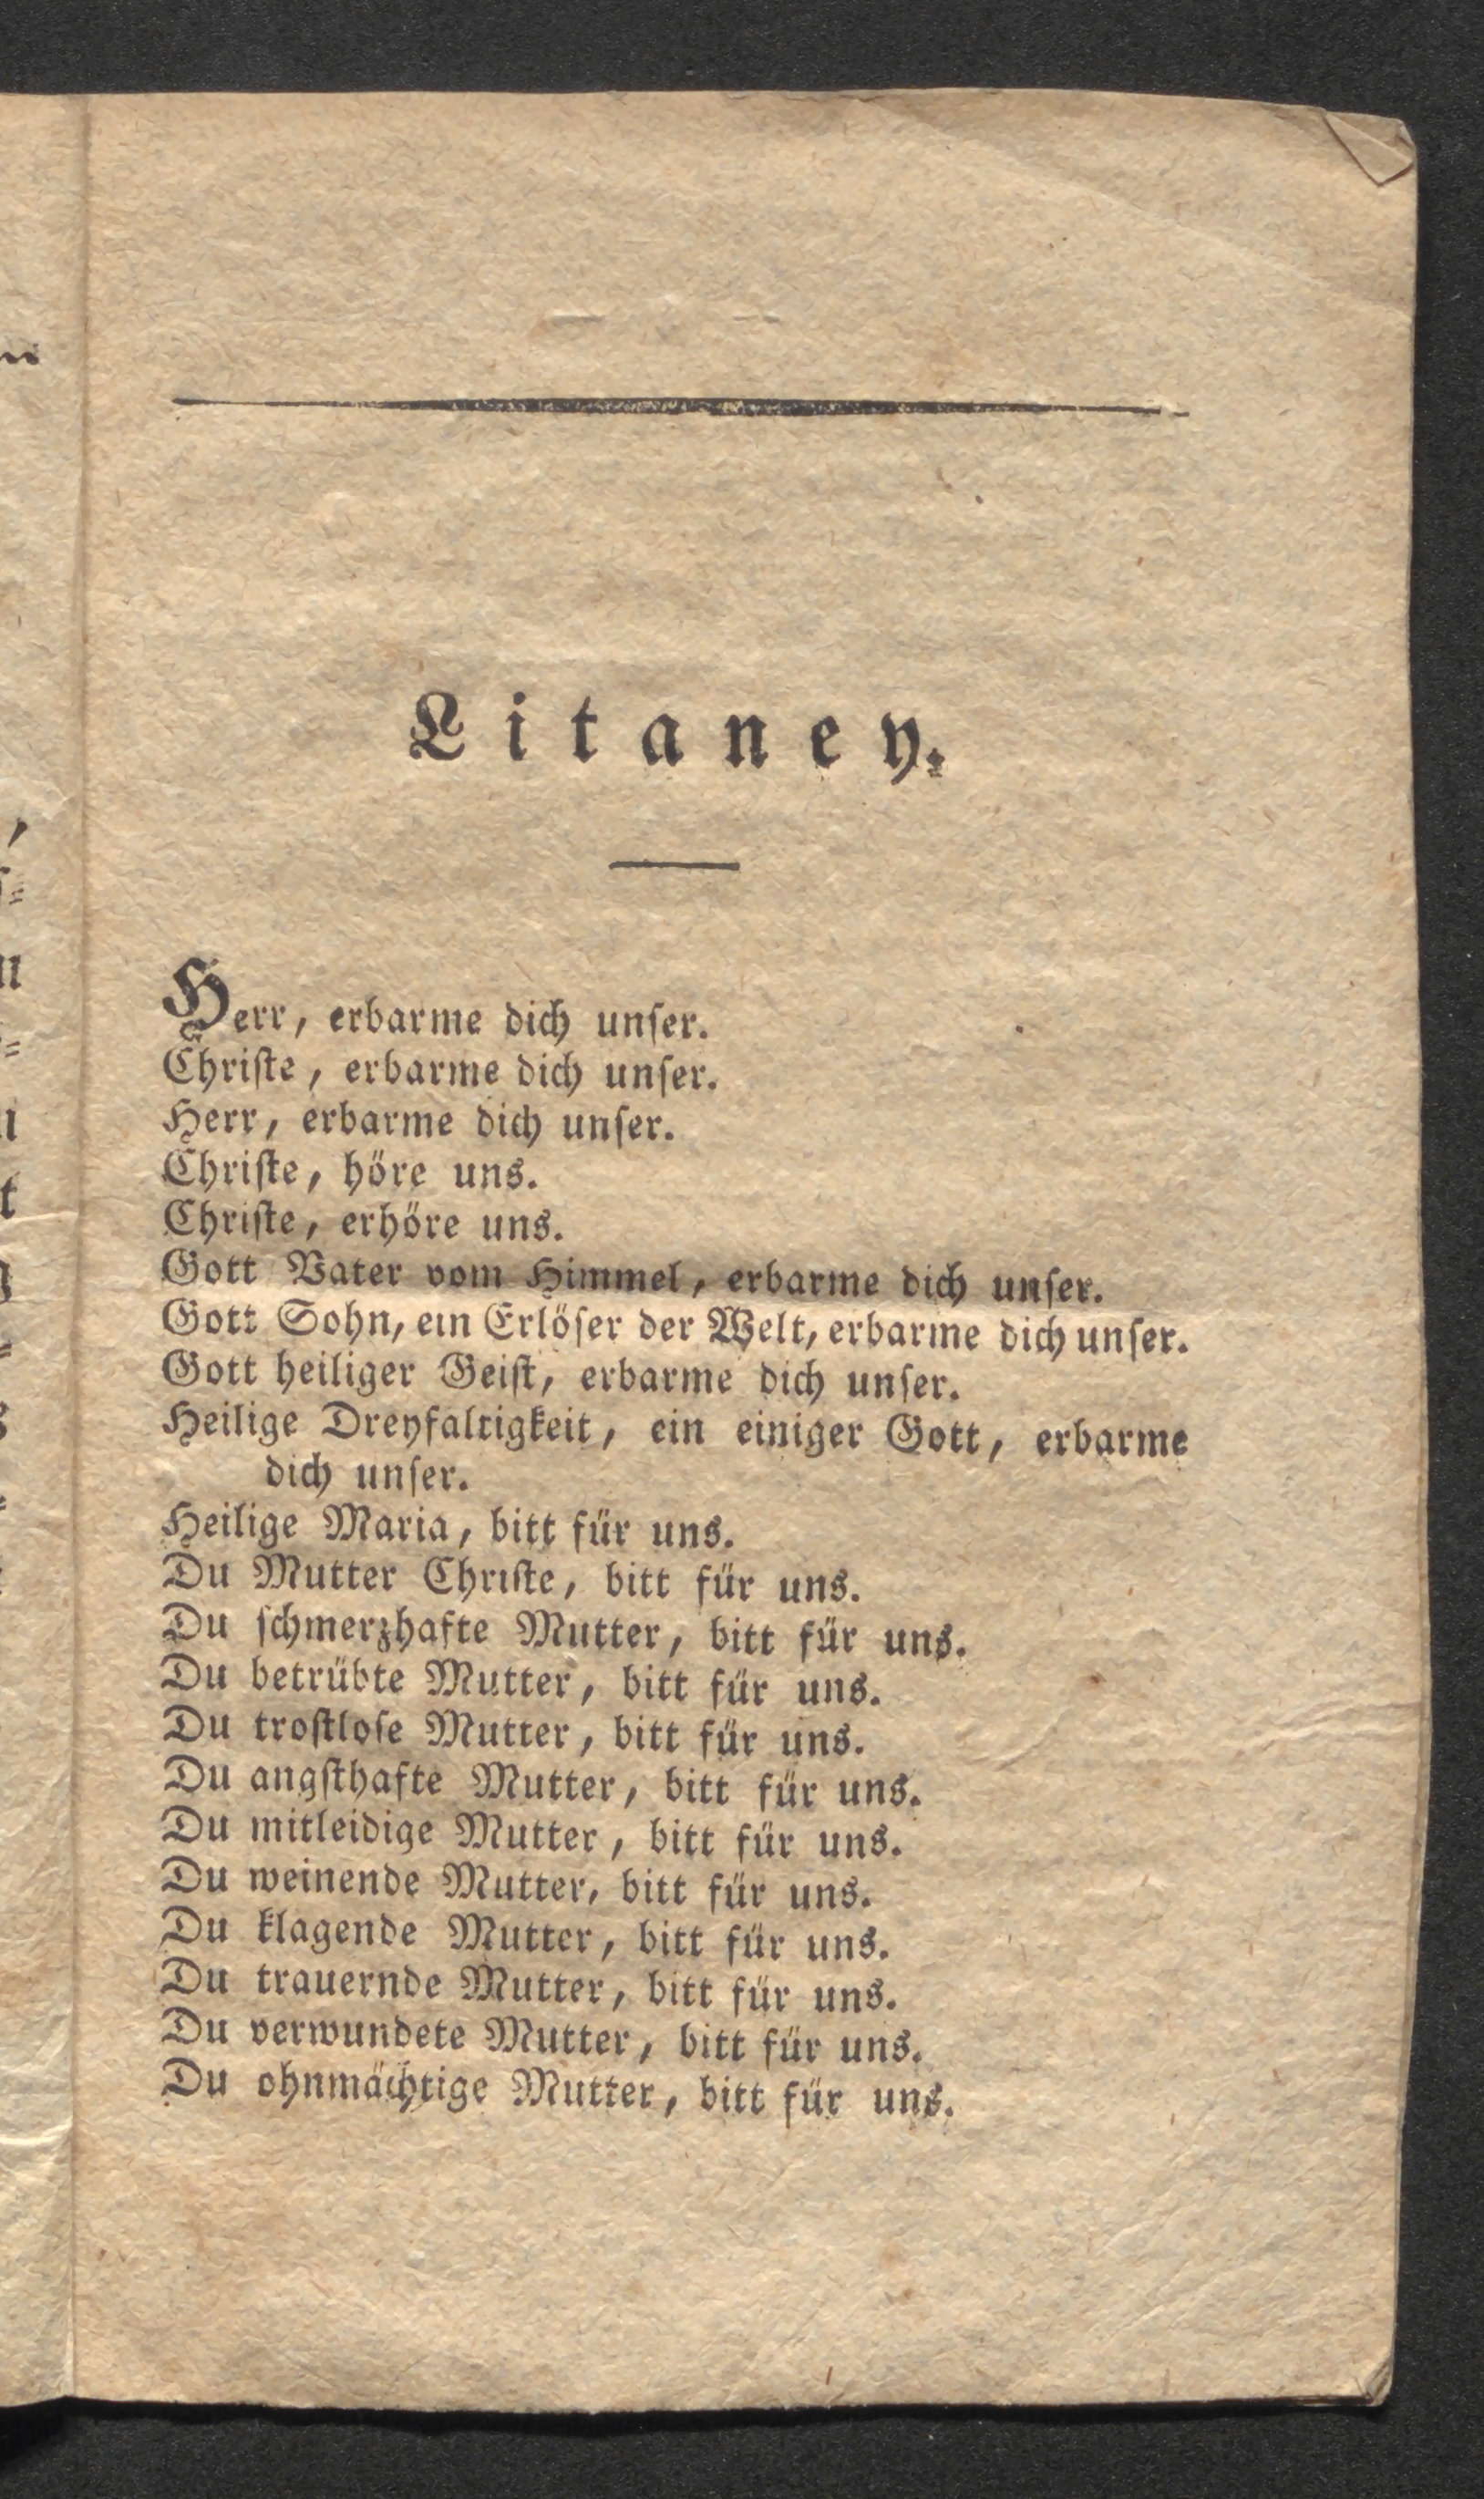 Litaney.
Herr, erbarme dich unſer.
Chriſte, erbarme dich unſer.
Herr, erbarme dich unſer.
Chriſte, höre uns.
Chriſte, erhöre uns.
Gott Vater vom Himmel, erbarme dich unſer.
Gott Sohn, ein Erlöſer der Welt, erbarme dich unſer.
Gott heiliger Geiſt, erbarme dich unſer.
Heilige Dreyfaltigkeit, ein einiger Gott, erbarme
dich unſer.
Heilige Maria, bitt für uns.
Du Mutter Chriſte, bitt für uns.
Du ſchmerzhafte Mutter, bitt für uns.
Du betrübte Mutter, bitt für uns.
Du troſtloſe Mutter, bitt für uns.
Du angſthafte Mutter, bitt für uns.
Du mitleidige Mutter, bitt für uns.
Du weinende Mutter, bitt für uns.
Du klagende Mutter, bitt für uns.
Du trauernde Mutter, bitt für uns.
Du verwundete Mutter, bitt für uns.
Du ohnmächtige Mutter, bitt für uns.